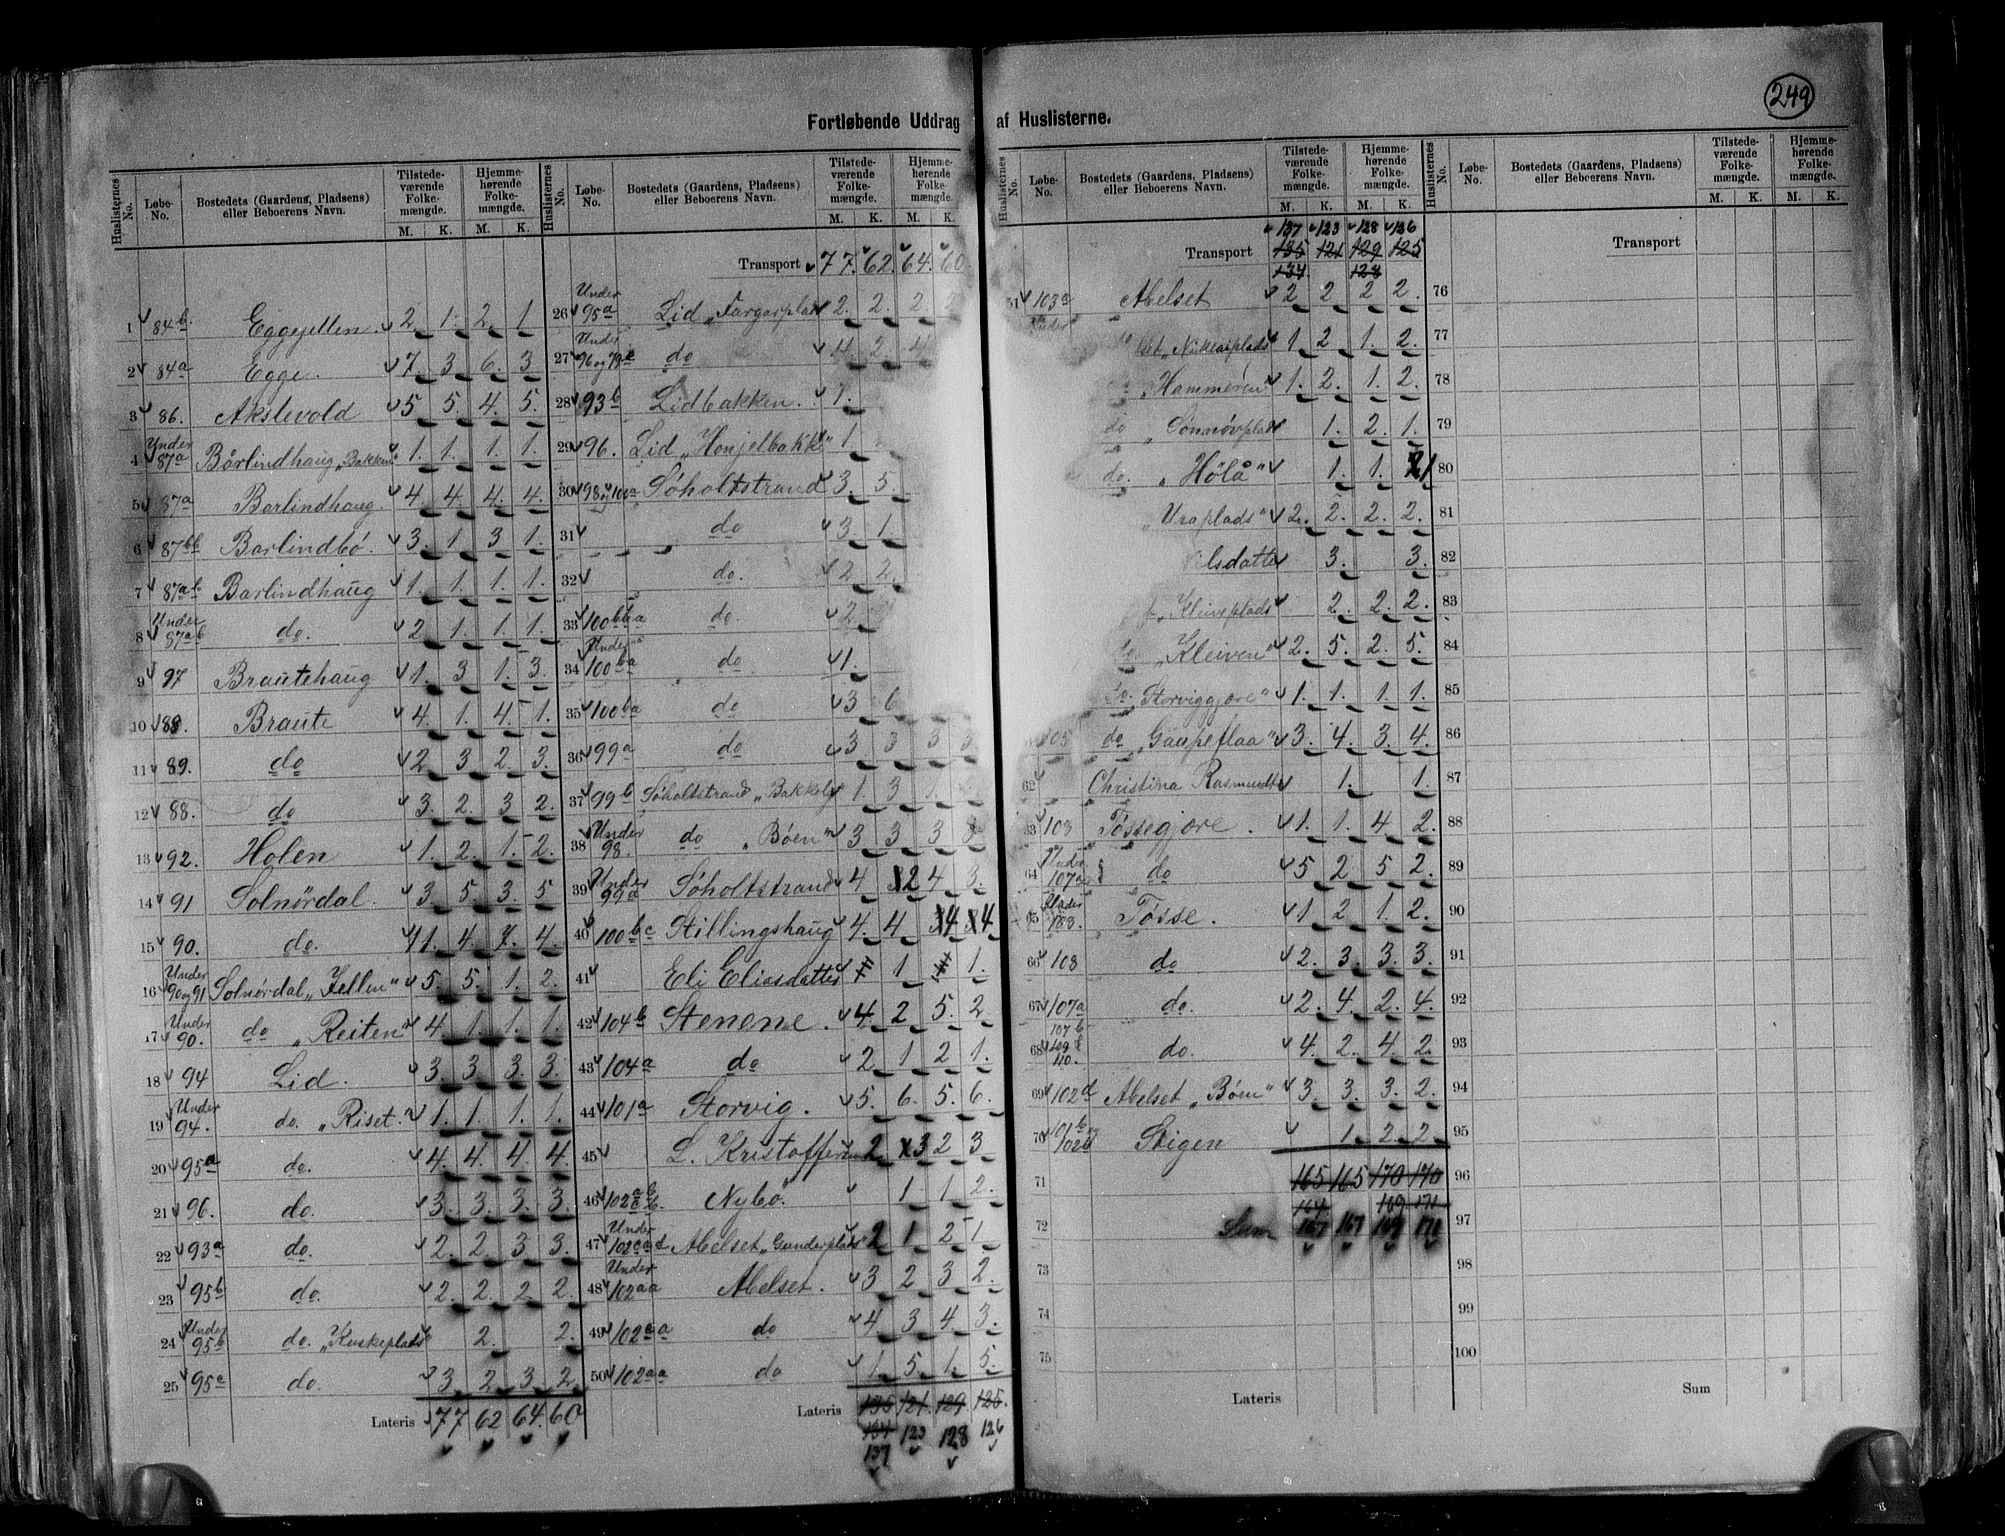 249
Fortløbende Uddrag af Huslisterne.
Huslisternes No. Løbe-No. Bostedets (Gaardens, Pladsens) eller Beboerens Navn. Tilstedeværende Folkemængde. M. K. Hjemmehørende Folkemængde. M. K.
1 84b. Eggejellen. 2. 1. 2. 1
2 84a Egge. 7. 3. 6. 3
3 86. Akslevold 5. 5. 4. 5.
4 Under 87a Bårlindhaug „Bakken" 1. 1. 1. 1.
5 87a Barlindhaug. 4. 4. 4. 4.
6 87bb Barlindbø. 3. 1. 3 1.
7 87ab Barlindhaug 1. 1. 1. 1.
8 Under 87ab do. 2. 1. 1. 1.
9 97 Brautehaug 1. 3 1. 3.
10 88. Braute 4. 1. 4. 1.
11 89. do 2. 3 2. 3.
12 88. do 3. 2. 3 2.
13 92. Holen 1. 2. 1. 2.
14 91 Solnördal. 3. 5. 3. 5
15 90. do. 4. 4.
16 Under 90 og 91 Solnördal „Jellen" 5. 5. 1. 2.
17 Under 90. do „Reiten" 4 1. 1. 1.
18 94 Lid. 3. 3. 3. 3.
19 Under 94. do. „Riset." 1. 1. 1. 1.
20 95a do. 4. 4. 4. 4.
21 96. do. 3. 3. 3. 3.
22 93a do. 2. 2. 3. 3.
23 95b do. 2. 2. 2. 2.
24 Under 95b do. „Kuskeplads" 2. 2.
25 95c do. 3. 2. 3. 2.
Lateris 77 62 64. 60
Huslisternes No. Løbe-No. Bostedets (Gaardens, Pladsens) eller Beboerens Navn. Tilstedeværende Folkemængde. M. K. Hjemmehørende Folkemængde. M. K.
Transport 77. 62. 64. 60
26 Under 95a Lid „Fargarplads 2. 2. 2.
27 Under 96 og 79 do 4. 2. 4
28 93b Lidbakken. 1.
29 96. Lid „Honjelbakk" 1.
30 98 og 100a Søholtstrand 3. 5.
31 do 3. 1.
32 do. 2 2.
33 100bba do. 2
34 Under 100ba do 1.
35 100ba do 3 6
36 99a do 3. 3 3 3.
37 99b Søholtstrand „Bakkely 1. 3
38 Under 98. do „Bøen" 3 3. 3
39 Under 99a Søholtstrand 4 2 4 3.
40 100bc Stillingshaug 4. 4 4 4
41 Eli Eliasdatter 1 1.
42 104b Stenene. 4. 2 5. 2.
43 104a do 2. 1 2 1.
44 101a Storvig. 5. 6. 5. 6.
45 L. Kristoffersen 2 3 2 3
46 102 Nybø. 1. 1. 2.
47 Under 102aad Abelset „Gunderplads" 2 1. 2 1.
48 Under 102aa Abelset. 3 2 3 2.
49 102aa do 4. 3. 4. 3.
50 102aa do 1. 5. 1. 5.
Lateris 135 121. 129. 125.
134 123 128 126
137
Huslisternes No. Løbe-No. Bostedets (Gaardens, Pladsens) eller Beboerens Navn. Tilstedeværende Folkemængde. M. K. Hjemmehørende Folkemængde. M. K.
137 123 128 126
Transport 135 121 129 125
134 128
51 103a Abelset 2 2 2 2.
Under „Niklasplads" 1. 2 1. 2.
„Hammeren" 1. 2. 1. 2.
do „Sonnøvplads 1. 2. 1.
do. „Hølå" 1. 1. 1
„Uraplads" 2. 2. 2. 2.
Olsdatter 3. 3.
„Kleiveplads 2. 2. 2.
do. „Kleiven" 2. 5. 2. 5.
do. „Storviggjøre" 1. 1. 1. 1.
105 do „Gaupeflaa" 3. 4. 3. 4.
62 Christina Rasmusdtr 1. 1.
63 108 Tøssegjøre. 1. 1. 4 2.
64 Under 107a do 5 2 5 2.
65 Under 108. Tøsse. 1 2 1. 2.
66 108 do 2. 3. 3. 3.
67 107a do. 2. 4. 2. 4.
68 107b 109 110. do. 4. 2. 4. 2.
69 102d Abelset „Bøen" 3. 3. 3. 2.
70 101b og 102b Stigen 1 2. 2.
71 165 165 170 170
164 169 171
72 Sum 167 167 169 171
73
74
75
Lateris
Huslisternes No. Løbe-No. Bostedets (Gaardens, Pladsens) eller Beboerens Navn. Tilstedeværende Folkemængde. M. K. Hjemmehørende Folkemængde. M. K.
Transport
76
77
78
79
80
81
82
83
84
85
86
87
88
89
90
91
92
93
94
95
96
97
98
99
100
Sum